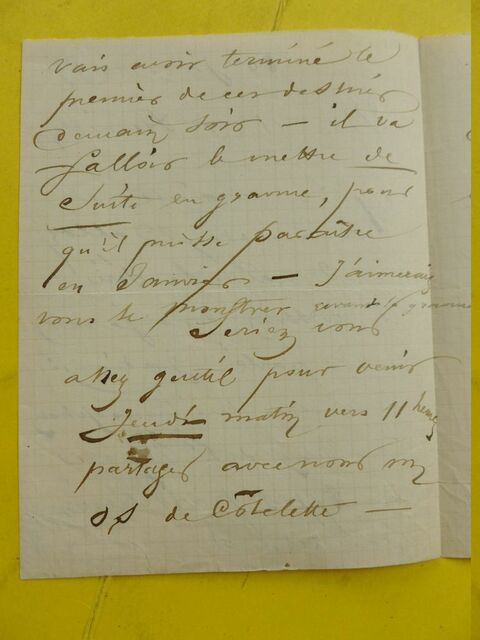 vais avoir terminé le
premier de ces dessins
demain soir — il va
falloir le mettre de
suite en gravure, pour
qu'il puisse paraître
en Janvier — J'aimerais
vous le montrer avant la gravure
Seriez vous
assez gentil pour venir
Jeudi matin vers 11 heures
partager avec nous un
os de Côtelette —